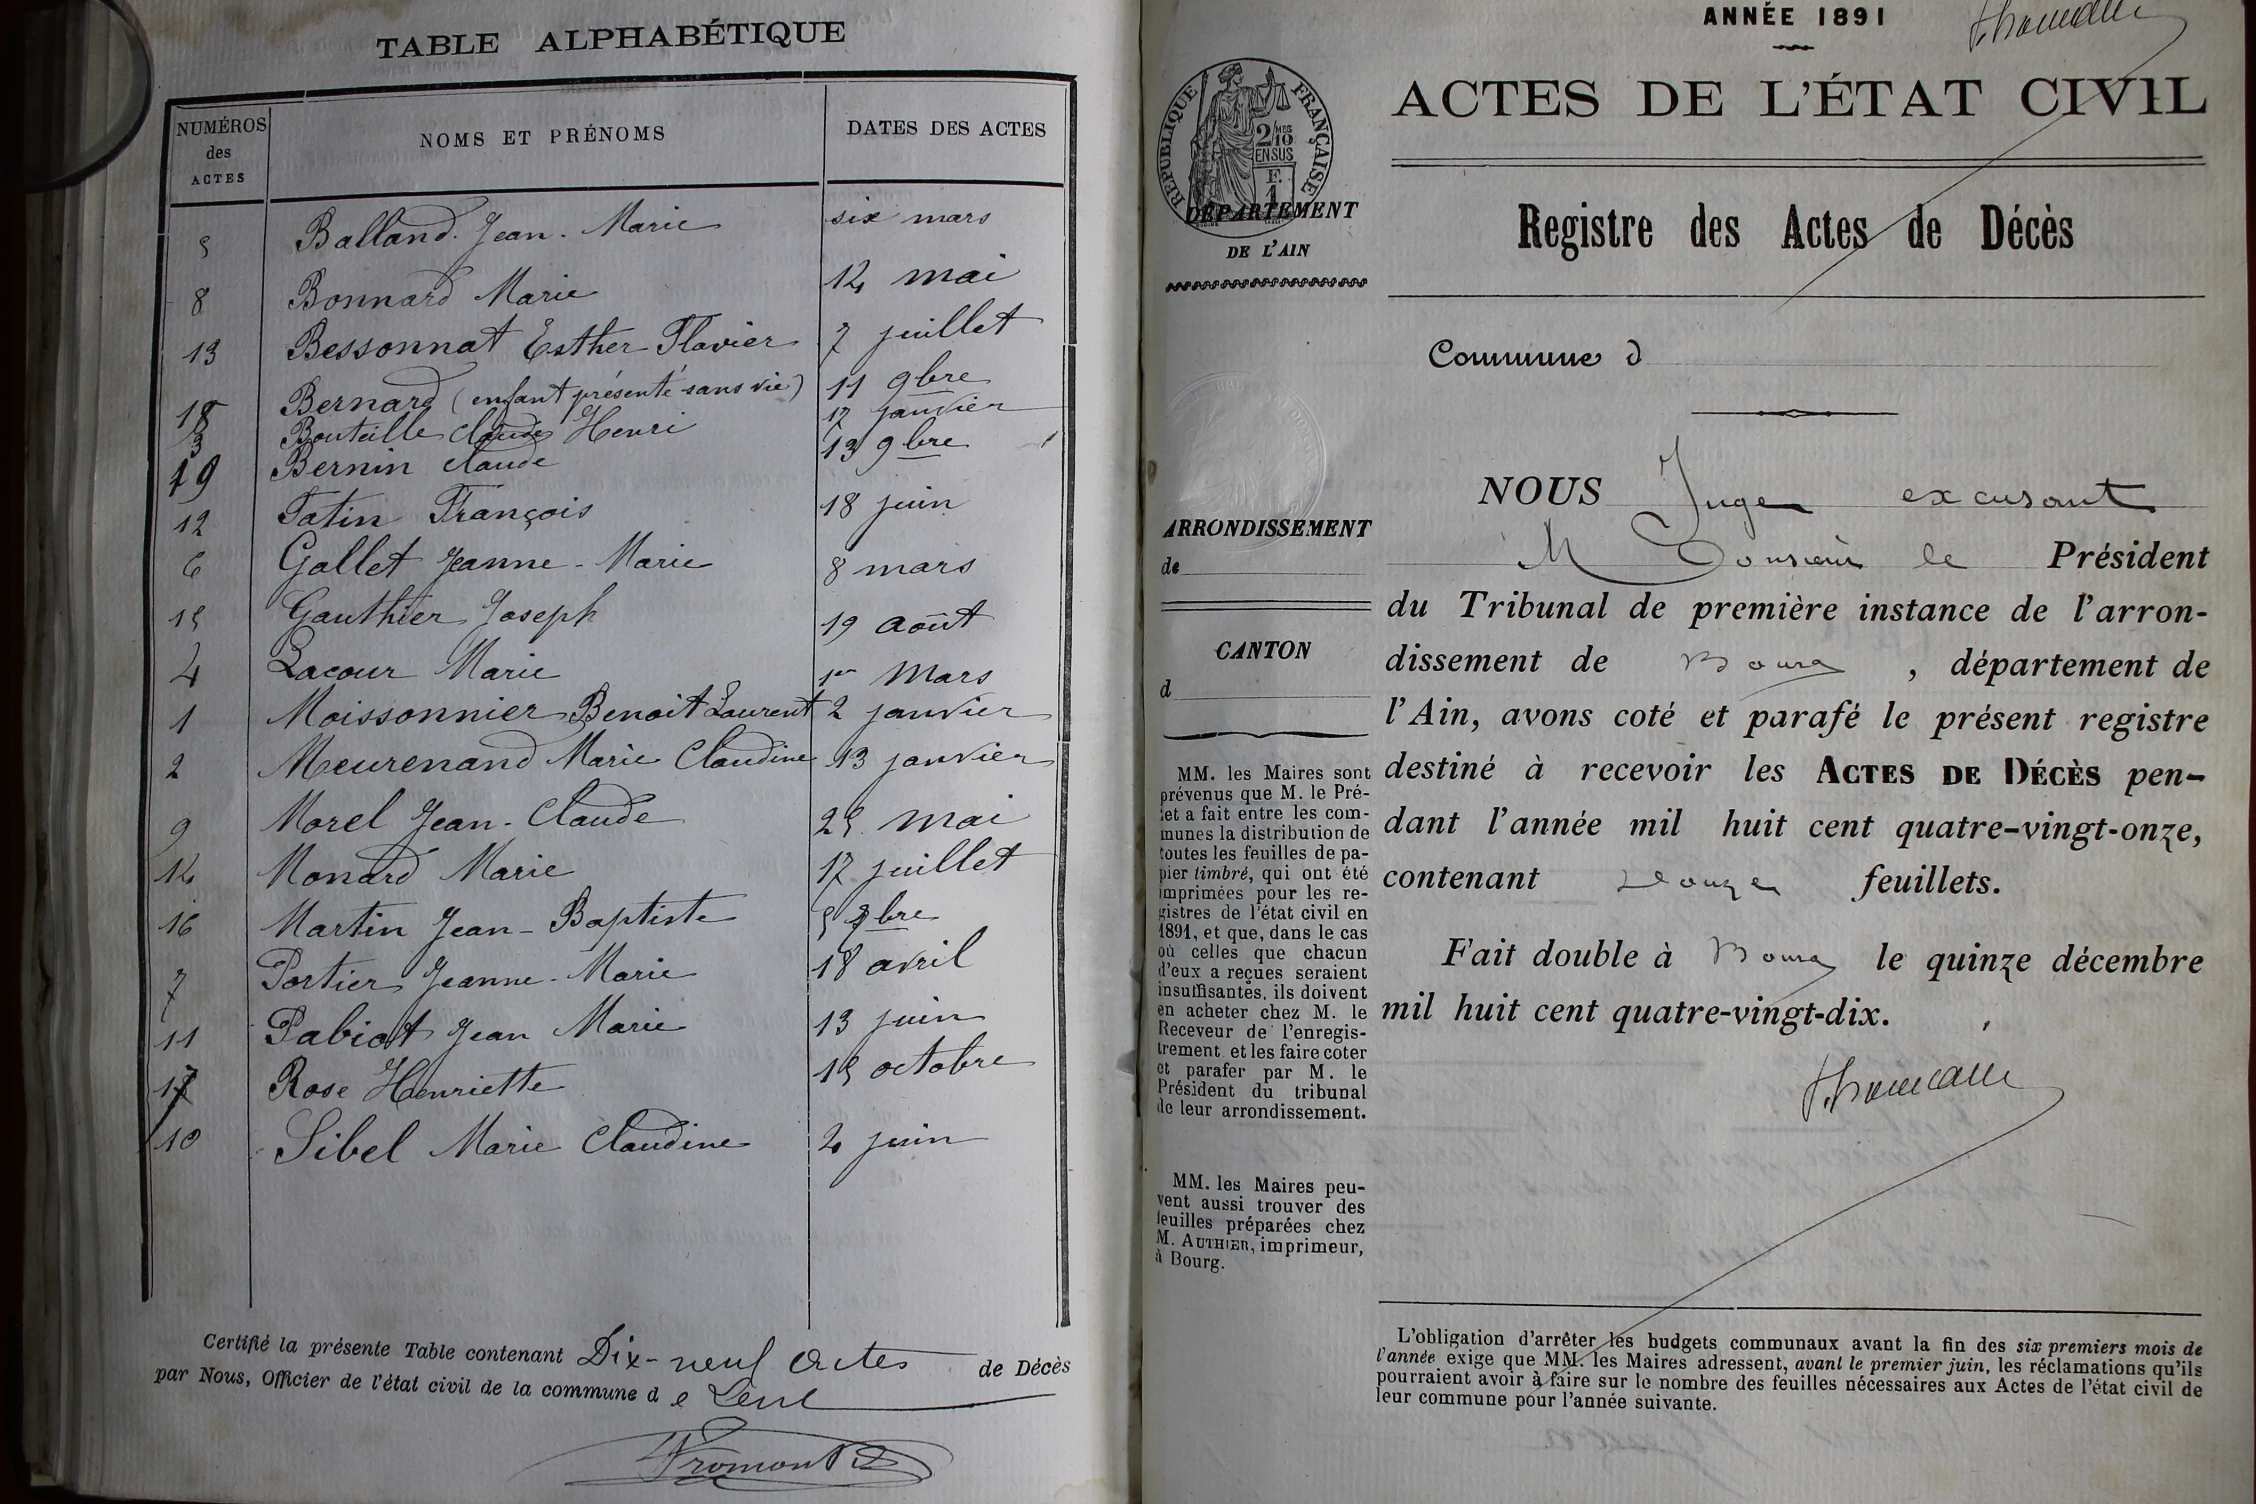 TABLE ALPHABÉTIQUE
NUMÉROS des ACTES NOMS ET PRÉNOMS DATES DES ACTES
5 Balland Jean-Marie six mars
8 Bonnard Marie 14 mai
13 Bessonnat Esther Flavier 7 juillet
18 Bernard (enfant présenté sans vie) 11 9bre
3 Bouteille Claude Henri 17 janvier
19 Bernin Claude 13 9bre
12 Tatin François 18 juin
6 Gallet Jeanne-Marie 8 mars
15 Gauthier Joseph 19 août
4 Lacour Marie 1er Mars
1 Moissonnier Benoit Laurent 2 janvier
2 Meurenand Marie Claudine 13 janvier
9 Morel Jean-Claude 25 mai
14 Monard Marie 17 juillet
16 Martin Jean-Baptiste 5 bre
7 Portier Jeanne-Marie 18 avril
11 Pabiot Jean Marie 13 juin
17 Rose Henriette 15 octobre
10 Sibel Marie Claudine 4 juin
Certifié la présente Table contenant Dix-neuf Actes de Décès
par Nous, Officier de l'état civil de la commune d e
Fromont
ANNÉE 1891
ACTES DE L'ÉTAT CIVIL
RÉPUBLIQUE FRANÇAISE
2/10 MES
EN SUS
F. 1
DÉPARTEMENT
DE L'AIN
Registre des Actes de Décès
Commune d
ARRONDISSEMENT
de
CANTON
d
MM. les Maires sont
prévenus que M. le Pré-
fet a fait entre les com-
munes la distribution de
toutes les feuilles de pa-
pier timbré, qui ont été
imprimées pour les re-
gistres de l'état civil en
1891, et que, dans le cas
où celles que chacun
d'eux a reçues seraient
insuffisantes, ils doivent
en acheter chez M. le
Receveur de l'enregis-
trement et les faire coter
et parafer par M. le
Président du tribunal
de leur arrondissement.
MM. les Maires peu-
vent aussi trouver des
feuilles préparées chez
M. AUTHIER, imprimeur,
à Bourg.
NOUS Juge excusant
Monsieur le Président
du Tribunal de première instance de l'arron-
dissement de Bourg, département de
l'Ain, avons coté et parafé le présent registre
destiné à recevoir les ACTES DE DÉCÈS pen-
dant l'année mil huit cent quatre-vingt-onze,
contenant Douze feuillets.
Fait double à Bourg le quinze décembre
mil huit cent quatre-vingt-dix.
L'obligation d'arrêter les budgets communaux avant la fin des six premiers mois de
l'année exige que MM. les Maires adressent, avant le premier juin, les réclamations qu'ils
pourraient avoir à faire sur le nombre des feuilles nécessaires aux Actes de l'état civil de
leur commune pour l'année suivante.